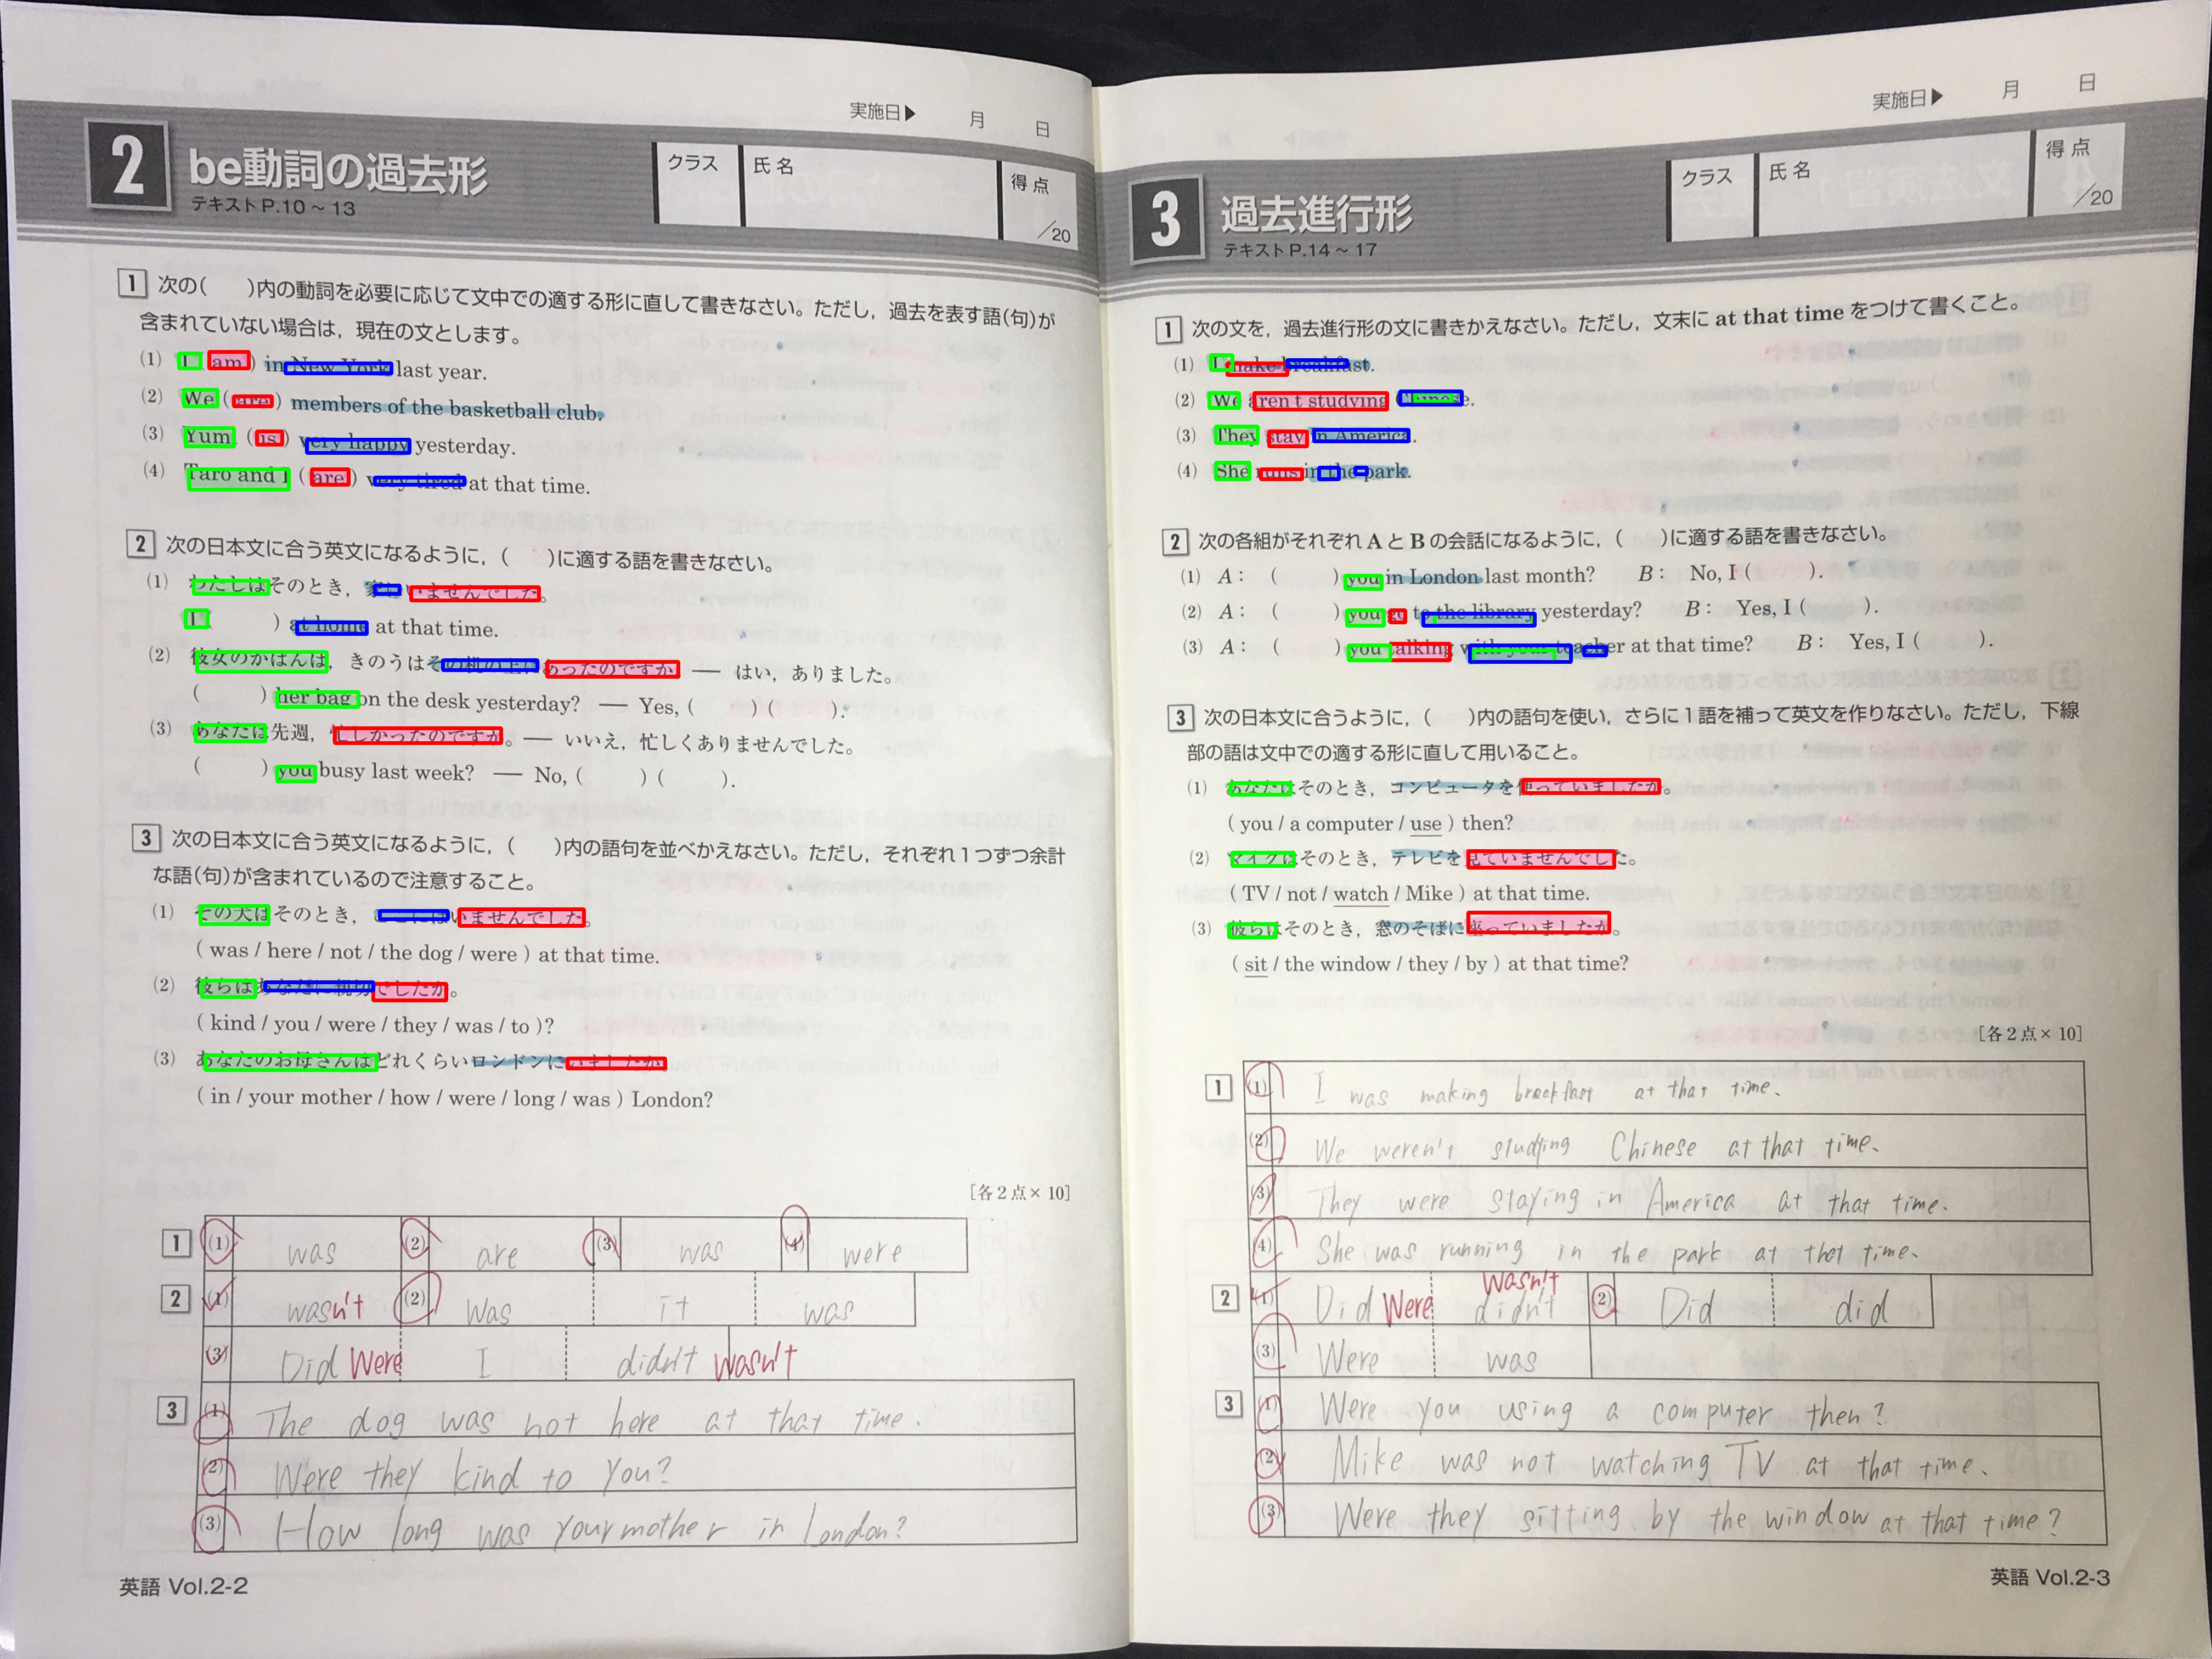 実施日▶ 月 日
2 be動詞の過去形
テキストP.10～13
クラス 氏名 得点 /20
1 次の( )内の動詞を必要に応じて文中での適する形に直して書きなさい。ただし，過去を表す語(句)が
含まれていない場合は，現在の文とします。
(1) I (am) in New York last year.
(2) We (are) members of the basketball club.
(3) Yumi (is) very happy yesterday.
(4) Taro and I (are) very tired at that time.
2 次の日本文に合う英文になるように，( )に適する語を書きなさい。
(1) わたしはそのとき，家にいませんでした。
I ( ) at home at that time.
(2) 彼女のかばんは，きのうはその机の上にあったのですか。 — はい，ありました。
( ) her bag on the desk yesterday? — Yes, ( ) ( ).
(3) あなたは先週，忙しかったのですか。— いいえ，忙しくありませんでした。
( ) you busy last week? — No, ( ) ( ).
3 次の日本文に合う英文になるように，( )内の語句を並べかえなさい。ただし，それぞれ1つずつ余計
な語(句)が含まれているので注意すること。
(1) その犬はそのとき，ここにはいませんでした。
( was / here / not / the dog / were ) at that time.
(2) 彼らはあなたに親切でしたか。
( kind / you / were / they / was / to )?
(3) あなたのお母さんはどれくらいロンドンにいましたか
( in / your mother / how / were / long / was ) London?
[各2点×10]
1 (1) was (2) are (3) was (4) were
2 (1) wasn't (2) Was it was
(3) Did Were I didn't wasn't
3 (1) The dog was not here at that time.
(2) Were they kind to you?
(3) How long was your mother in London?
英語 Vol.2-2
実施日▶ 月 日
3 過去進行形
テキストP.14～17
クラス 氏名 得点 /20
1 次の文を，過去進行形の文に書きかえなさい。ただし，文末に at that time をつけて書くこと。
(1) I make breakfast.
(2) We aren't studying Chinese.
(3) They stay in America.
(4) She runs in the park.
2 次の各組がそれぞれAとBの会話になるように，( )に適する語を書きなさい。
(1) A： ( ) you in London last month? B： No, I ( ).
(2) A： ( ) you go to the library yesterday? B： Yes, I ( ).
(3) A： ( ) you talking with your teacher at that time? B： Yes, I ( ).
3 次の日本文に合うように，( )内の語句を使い，さらに1語を補って英文を作りなさい。ただし，下線
部の語は文中での適する形に直して用いること。
(1) あなたはそのとき，コンピュータを使っていましたか。
( you / a computer / use ) then?
(2) マイクはそのとき，テレビを見ていませんでした。
( TV / not / watch / Mike ) at that time.
(3) 彼らはそのとき，窓のそばに座っていましたか。
( sit / the window / they / by ) at that time?
[各2点×10]
1 (1) I was making breakfast at that time.
(2) We weren't studying Chinese at that time.
(3) They were staying in America at that time.
(4) She was running in the park at that time.
2 (1) Did Were didn't wasn't (2) Did did
(3) Were was
3 (1) Were you using a computer then?
(2) Mike was not watching TV at that time.
(3) Were they sitting by the window at that time?
英語 Vol.2-3